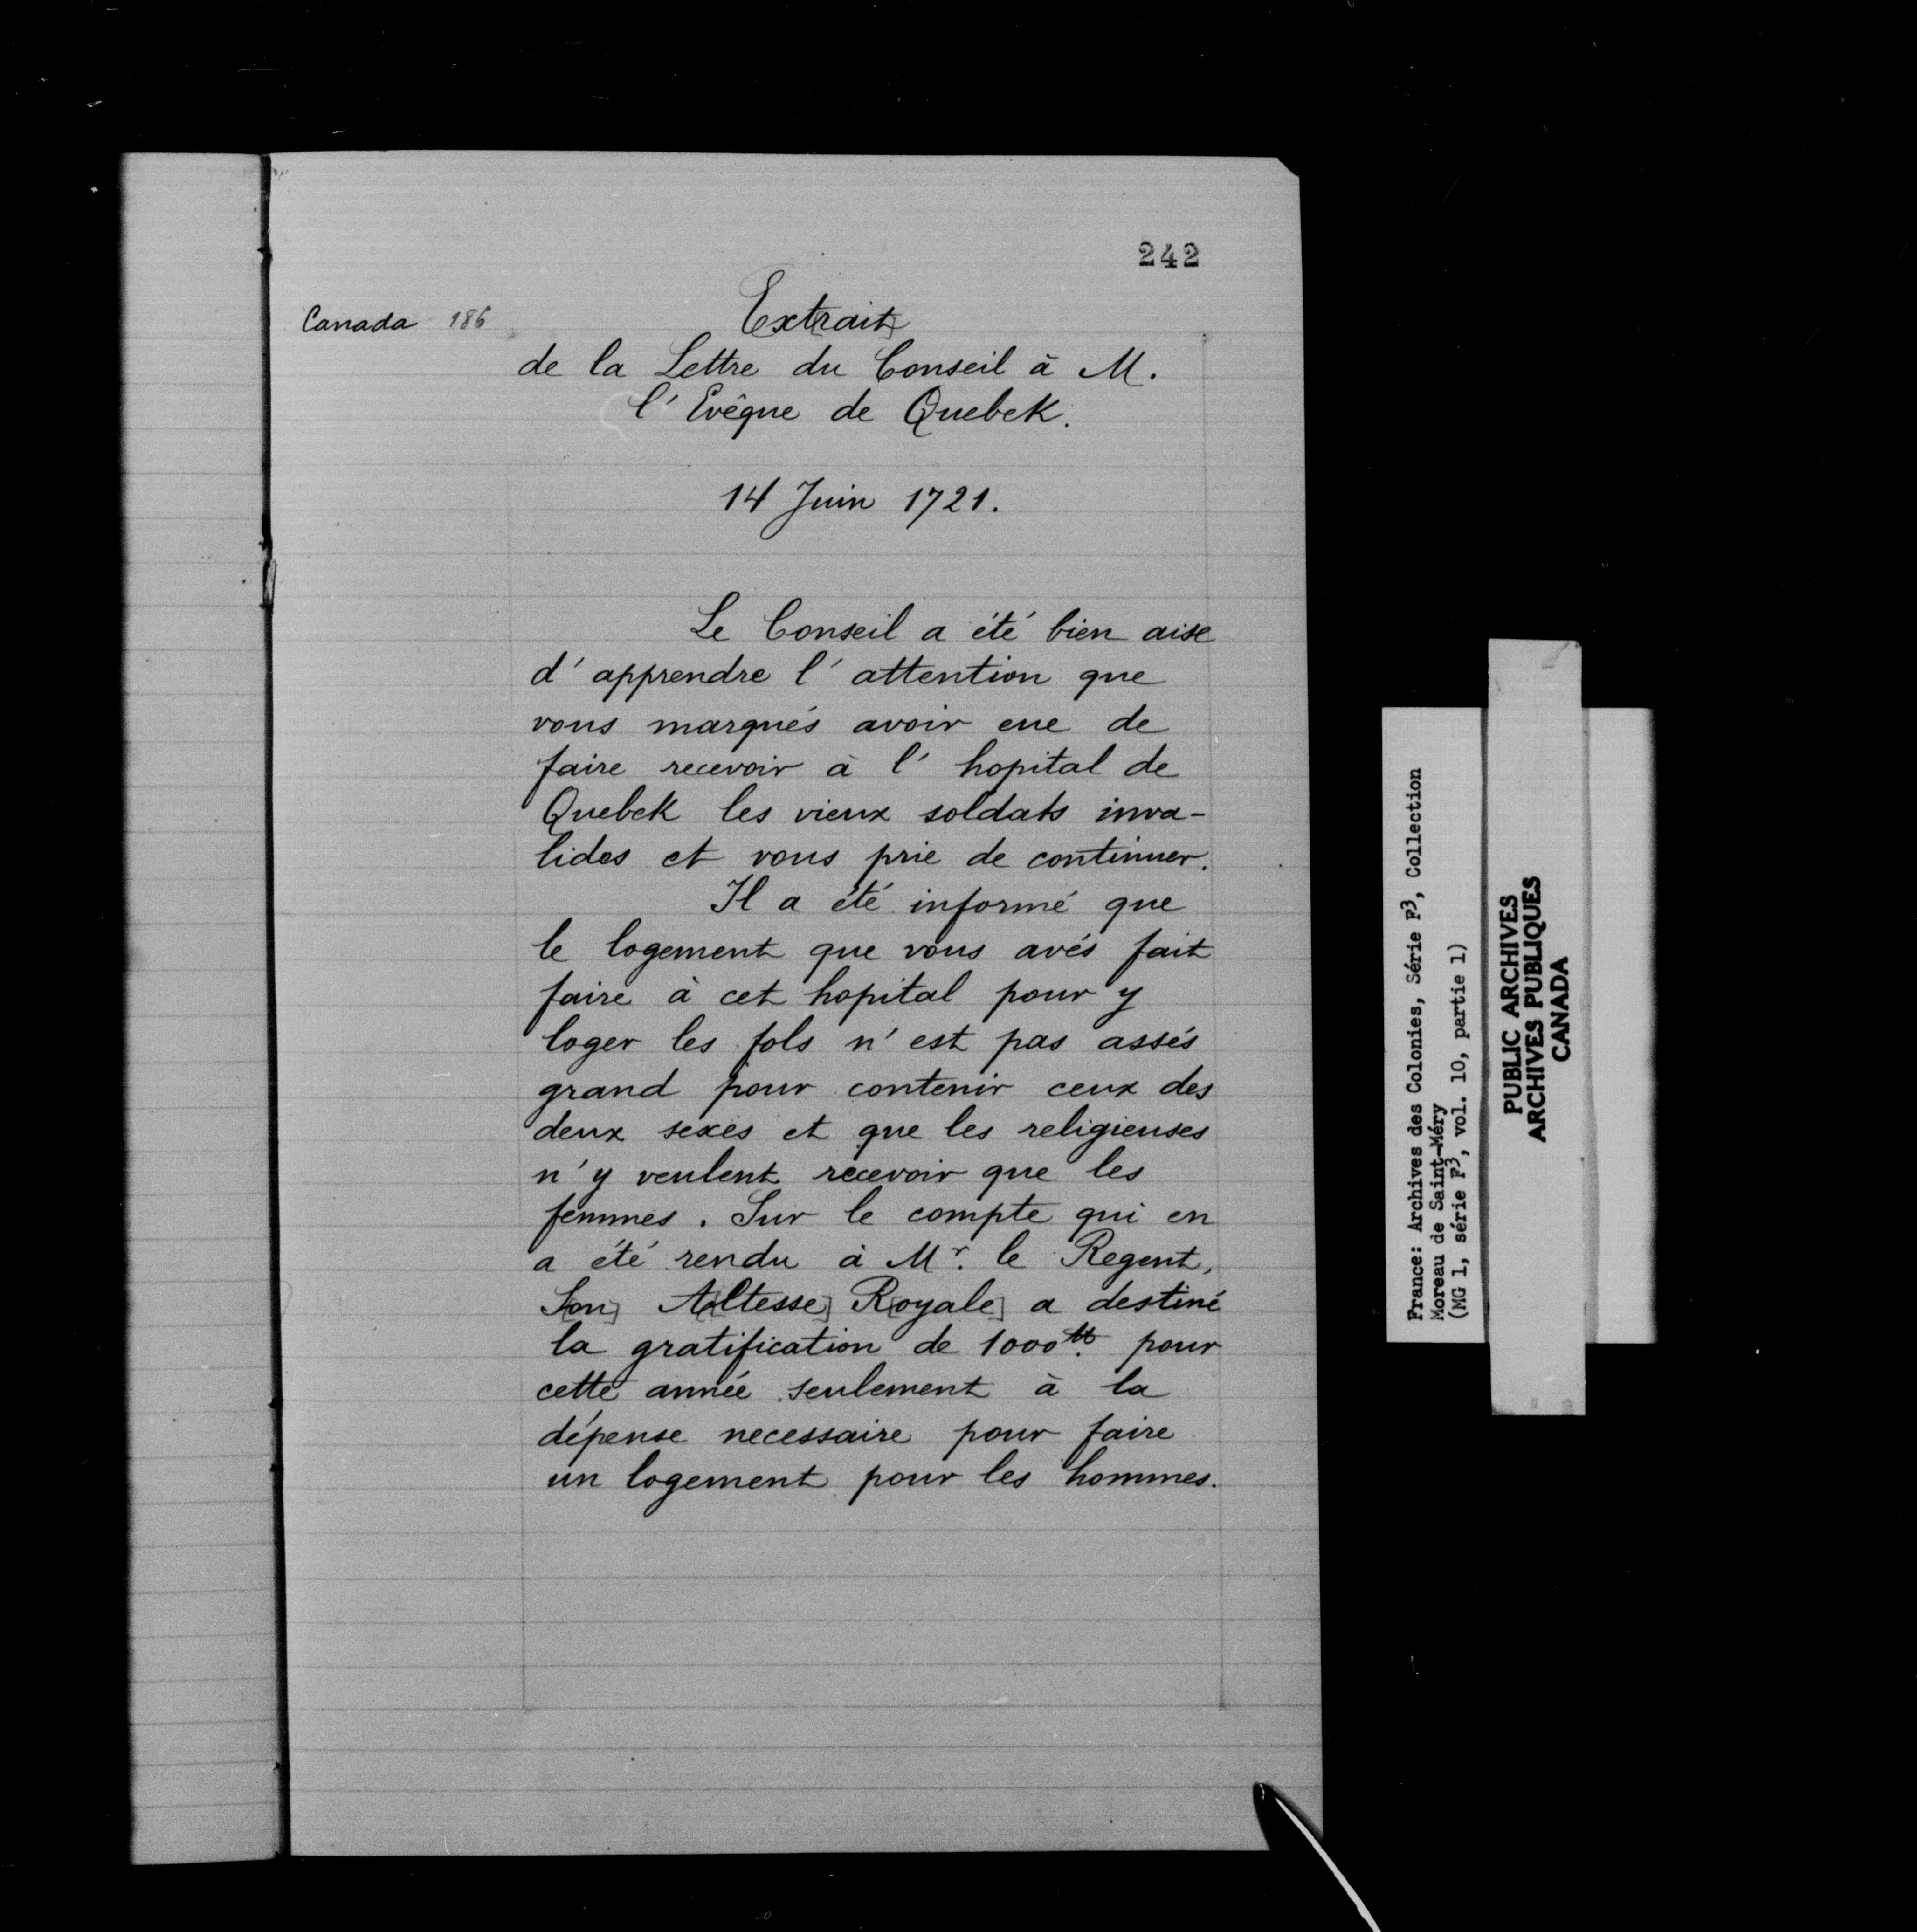 242
Canada 186
Ext[rait]
de la Lettre du Conseil à M.
l'Evêque de Quebek.
14 Juin 1721.
Le Conseil a été bien aise
d'apprendre l'attention que
vous marqués avoir eue de
faire recevoir à l'hopital de
Quebek les vieux soldats inva-
lides et vous prie de continuer.
Il a été informé que
le logement que vous avés fait
faire à cet hopital pour y
loger les fols n'est pas assés
grand pour contenir ceux des
deux sexes et que les religieuses
n'y veulent recevoir que les
femmes. Sur le compte qui en
a été rendu à Mr. le Regent,
S[on] A[ltesse] R[oyale] a destiné
la gratification de 1000tt. pour
cette année seulement à la
dépense necessaire pour faire
un logement pour les hommes.
France: Archives des Colonies, Série F3, Collection
Moreau de Saint-Méry
(MG 1, série F3, vol. 10, partie 1)
PUBLIC ARCHIVES
ARCHIVES PUBLIQUES
CANADA